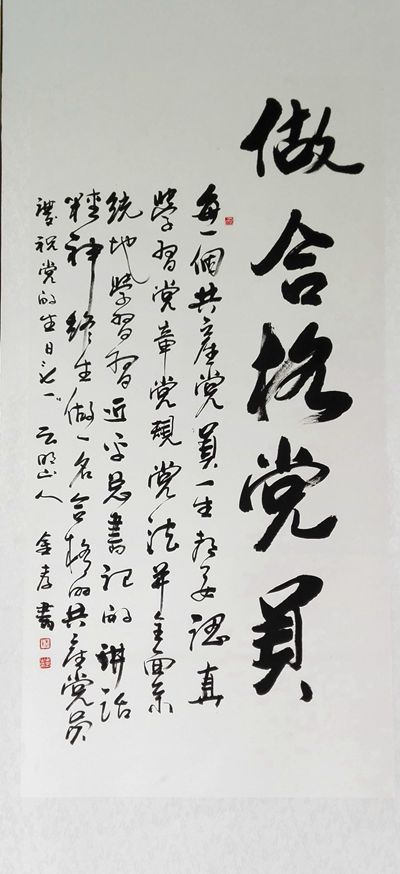 做合格党员
每一個共産党員一生都要認真
學習党章党規党法并全面系
统地學習習近平总書记的講話
精神终生做一名合格的共産党员
慶祝党的生日七一 云明山人
金孝書